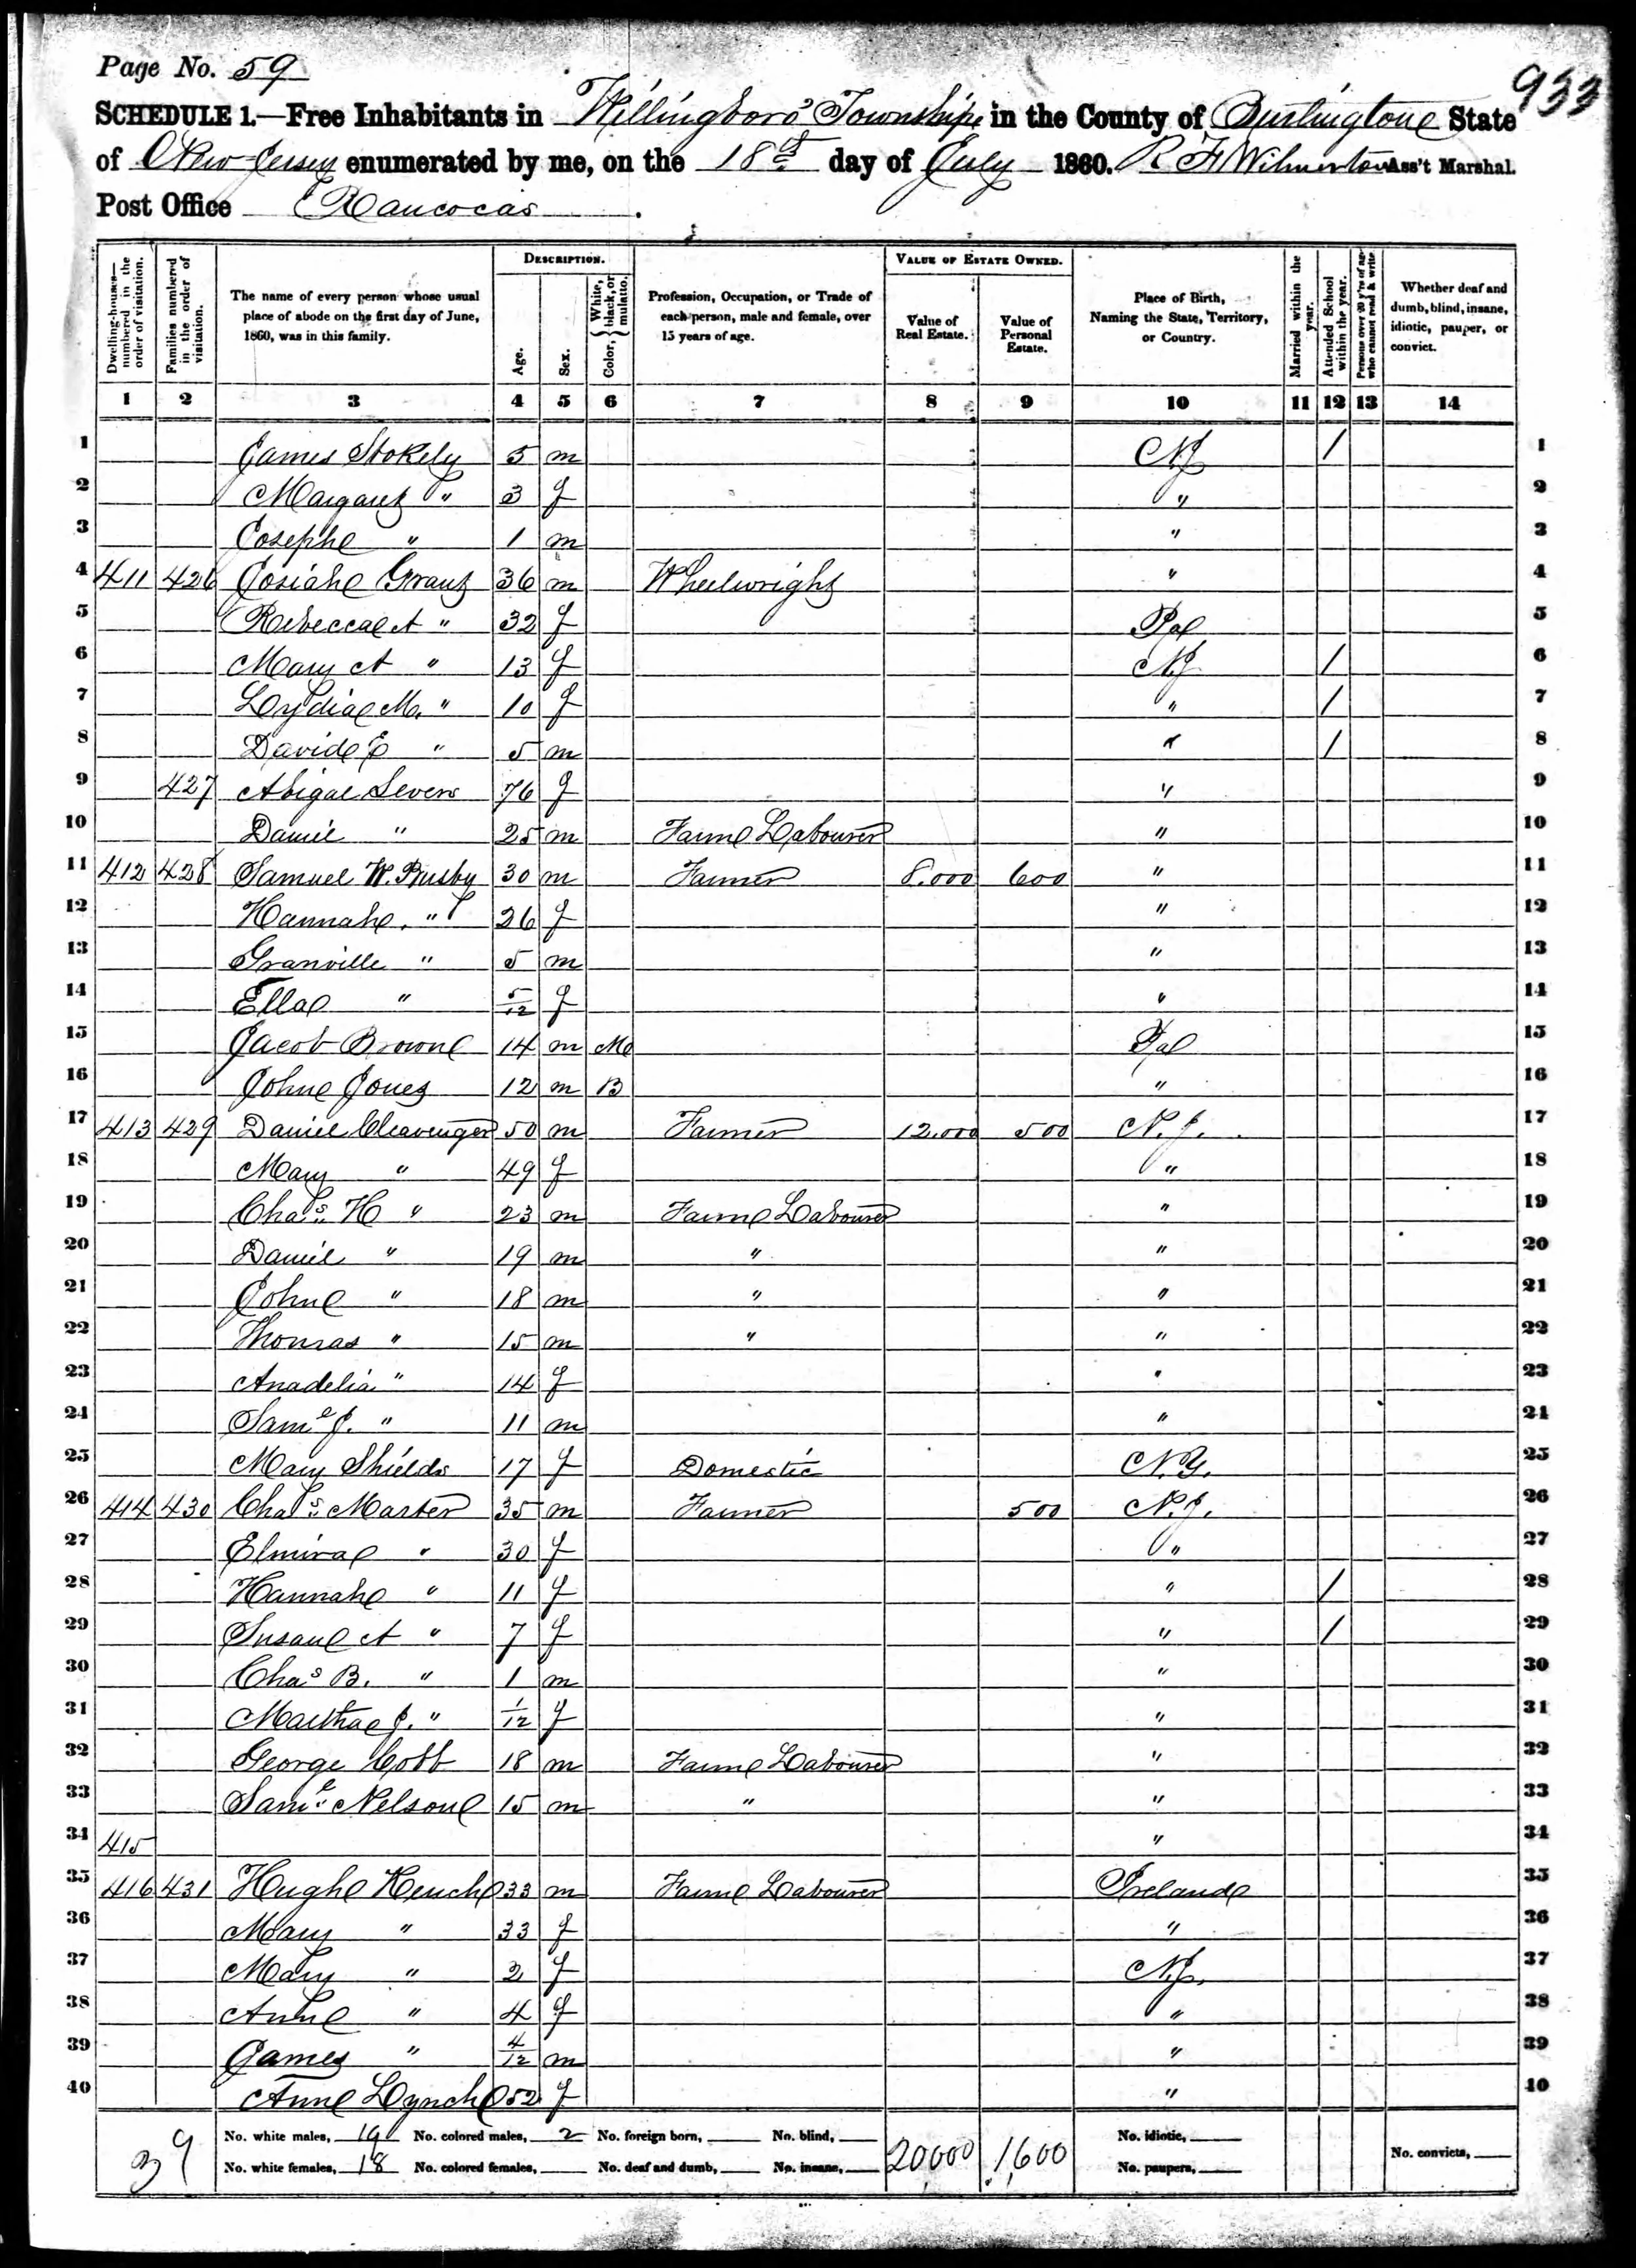 Page No. 59
933
SCHEDULE 1.—Free Inhabitants in Willingboro' Township in the County of Burlington State
of New Jersey enumerated by me, on the 18th day of July 1860. R F Wilmerton Ass't Marshal.
Post Office Rancocas .
Dwelling-houses—numbered in the order of visitation.
Families numbered in the order of visitation.
The name of every person whose usual place of abode on the first day of June, 1860, was in this family.
DESCRIPTION.
Age.
Sex.
Color, { White, black, or mulatto.
Profession, Occupation, or Trade of each person, male and female, over 15 years of age.
VALUE OF ESTATE OWNED.
Value of Real Estate.
Value of Personal Estate.
Place of Birth, Naming the State, Territory, or Country.
Married within the year.
Attended School within the year.
Persons over 20 y'rs of age who cannot read & write
Whether deaf and dumb, blind, insane, idiotic, pauper, or convict.
1 2 3 4 5 6 7 8 9 10 11 12 13 14
1 James Stokely 5 m NJ / 1
2 Margaret " 3 f " 2
3 Joseph " 1 m " 3
4 411 426 Josiah Grant 36 m Wheelwright " 4
5 Rebecca A " 32 f Pa 5
6 Mary A " 13 f NJ / 6
7 Lydia M. " 10 f " / 7
8 David E " 5 m " / 8
9 427 Abigal Severs 76 f " 9
10 Daniel " 25 m Farm Labourer " 10
11 412 428 Samuel W. Busby 30 m Farmer 8.000 600 " 11
12 Hannah " 26 f " 12
13 Granville " 5 m " 13
14 Ella " 5/12 f " 14
15 Jacob Brown 14 m M Pa 15
16 John Jones 12 m B " 16
17 413 429 Daniel Cleavenger 50 m Farmer 12.000 500 N.J. 17
18 Mary " 49 f " 18
19 Chas. H " 23 m Farm Labourer " 19
20 Daniel " 19 m " " 20
21 John " 18 m " " 21
22 Thomas " 15 m " " 22
23 Anadelia " 14 f " 23
24 Saml J. " 11 m " 24
25 Mary Shields 17 f Domestic N.Y. 25
26 414 430 Chas. Marter 35 m Farmer 500 N.J. 26
27 Elmira " 30 f " 27
28 Hannah " 11 f " / 28
29 Susan A " 7 f " / 29
30 Chas B. " 1 m " 30
31 Martha J. " 1/12 f " 31
32 George Cobb 18 m Farm Labourer " 32
33 Saml. Nelson 15 m " " 33
34 415 " 34
35 416 431 Hugh 33 m Farm Labourer Ireland 35
36 Mary " 33 f " 36
37 Mary " 2 f N.J. 37
38 Ann " 4 f " 38
39 James " 4/12 m " 39
40 Ann Lynch 52 f " 40
39
No. white males, 19 No. colored males, 2 No. foreign born, No. blind, 20,000 1,600 No. idiotic,
No. white females, 18 No. colored females, No. deaf and dumb, No. insane, No. paupers, No. convicts,